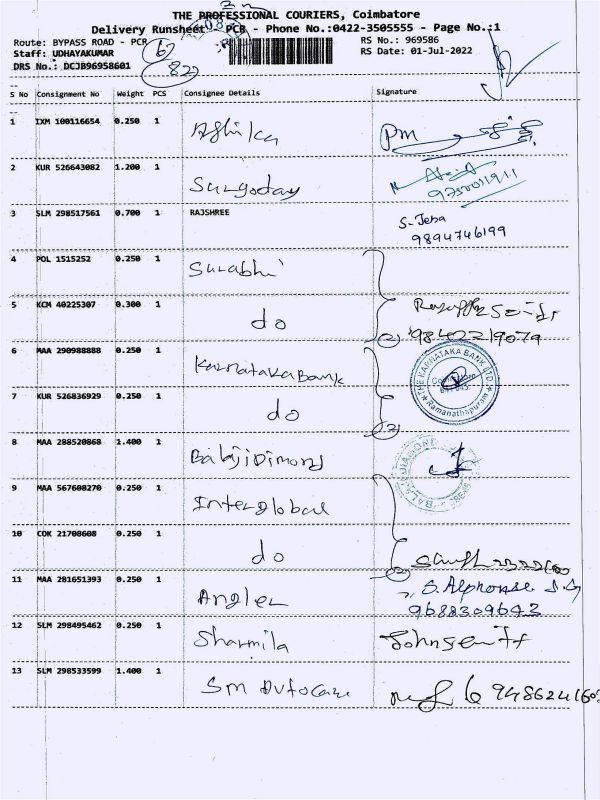 THE PROFESSIONAL COURIERS, Coimbatore
Delivery Runsheet - PCB - Phone No.:0422-3505555 - Page No.:1
Route: BYPASS ROAD - PCR
RS No.: 969586
Staff: UDHAYAKUMAR
RS Date: 01-Jul-2022
DRS No.: DCJB96958601
62
822
S No Consignment No Weight PCS Consignee Details Signature
1 IXM 100116654 0.250 1 Pm
2 KUR 526643082 1.200 1 Suryoday
3 SLM 298517561 0.700 1 RAJSHREE S-Jeba
9894746199
4 POL 1515252 0.250 1 Surabhi
5 KCM 40225307 0.300 1 do
(2) 9840221907a
6 MAA 290988888 0.250 1 Karnataka Bank
THE KARNATAKA BANK LTD.
Ramanathapuram
7 KUR 526836929 0.250 1 do
(2)
8 MAA 288520868 1.400 1 Balaji Dimond
9 MAA 567608270 0.250 1 Interglobal
10 COK 21708608 0.250 1 do
11 MAA 281651393 0.250 1 Angler S. Alphonse
9688309643
12 SLM 298495462 0.250 1 Sharmila
13 SLM 298533599 1.400 1 Sm Autocare